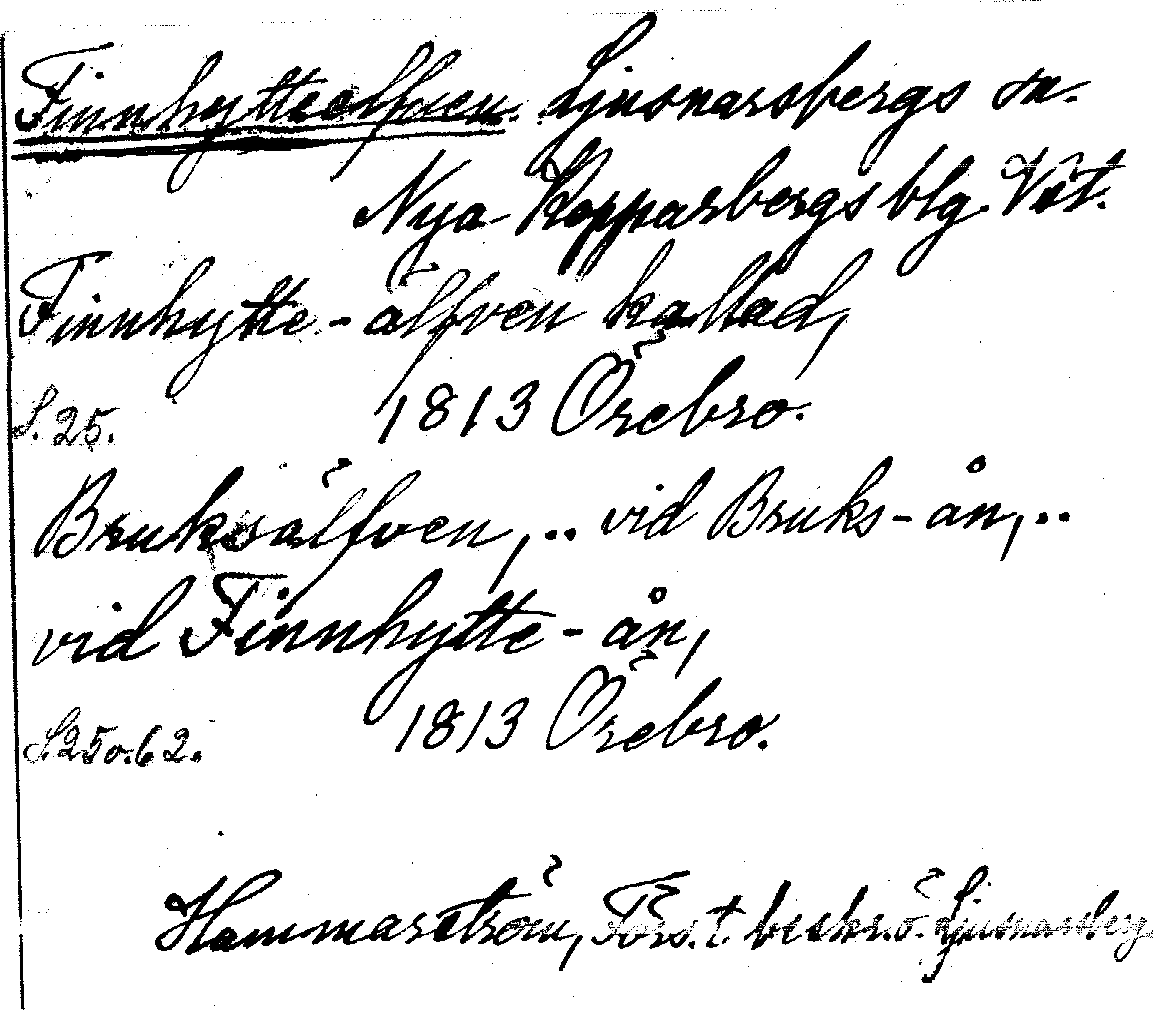 Finnhytteelfven. Ljusnarsbergs sn.
Nya Kopparbergs blg. Vst.
Finnhytte-älfven kallad,
S. 25. 1813 Örebro.
Bruksälfven,.. vid Bruks-ån,..
vid Finnhytte-ån,
S. 25 o. 62. 1813 Örebro.
Hammarström, Förs. t. beskr. ö. Ljusnarsberg